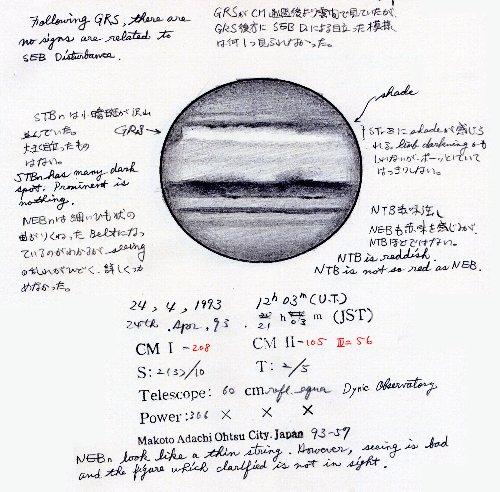 Following GRS, there are
no signs are related to
SEB Disturbance.
GRSがCM通過後より雲間で見ていたが、
GRS後方に SEB Dによる目立った模様
は何1つ見られなかった。
shade
STBnは小暗斑が沢山
並んでいた。
大きく目立ったもの
はない。
STBn has many dark
spot. Prominent is
nothing.
NEBnは細いひも状の
曲がりくねったBeltになっ
ているのがわかるが、seeing
の乱れがひどく、詳しくつか
めなかった。
GRS→
にshadeが感じら
れる limb darkningかも
しれないが、ボーッとしていて
はっきりしない。
NTB赤味強し
NEBも赤味を感じるが、
NTBほどではない。
NTB is reddish.
NTB is not so red as NEB.
24, 4, 1993 12h 03m (U.T.)
24th. Apr. 93. 21 h 03 m (JST)
CM I -208 CM II -105 III= 56
S: 2(3)/10 T: 2/5
Telescope: 60 cm refl. equa Dynic Observatory
Power: 366 × × ×
Makoto Adachi Ohtsu City. Japan 93-57
NEBn look like a thin string. However, seeing is bad
and the figure which clarified is not in sight.